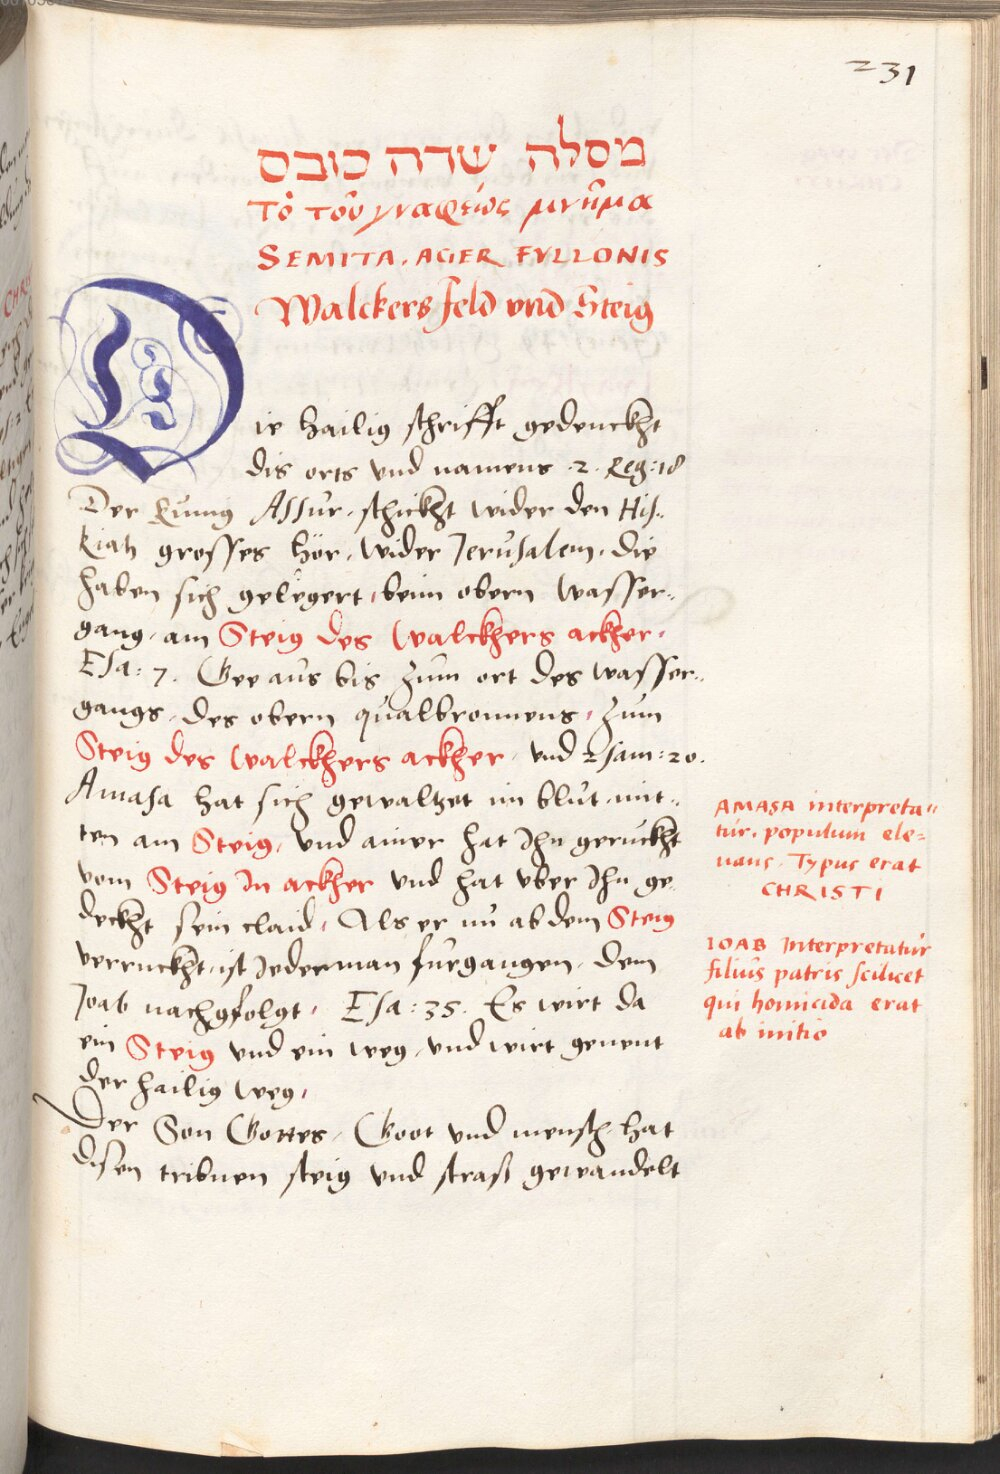 231
מסלה שדה כובס
τὸ τοῦ γναφέως μνῆμα
SEMITA. AGER FVLLONIS
Walckers feld vnd Steig
Die hailig schrifft gedenckht
dis orts vnd namens .2. Reg: 18
Der Kunig Assur. schickht wider den His-
kiah grosses hör, wider Jerusalem. die
haben sich gelegert, beim obern wasser-
gang, am Steig des Walckhers ackher.
Esa: 7. Gee aus bis zum ort des wasser-
gangs, des obern qualbronnens, zum
Steig des Walckhers ackher, vnd 2 Sam: 20.
Amasa hat sich gewaltzet im blut mit-
ten am Steig, vnd ainer hat Ihn geruckht
vom Steig In ackher vnd hat vber Ihn ge
deckht sein claid, Als er nu ab dem Steig
verruckht, ist Jederman furgangen, dem
Joab nachgfolgt, Esa: 35. Es wirt da
ein Steig vnd ein weg, vnd wirt genent
der hailig weg,
Der Son Gottes, Goot vnd mensch hat
disen tribnen steig vnd strass gewandelt
AMASA interpreta-
tur. populum ele-
uans. Typus erat
CHRISTI
IOAB Interpretatur
filius patris scilicet
qui homicida erat
ab initio